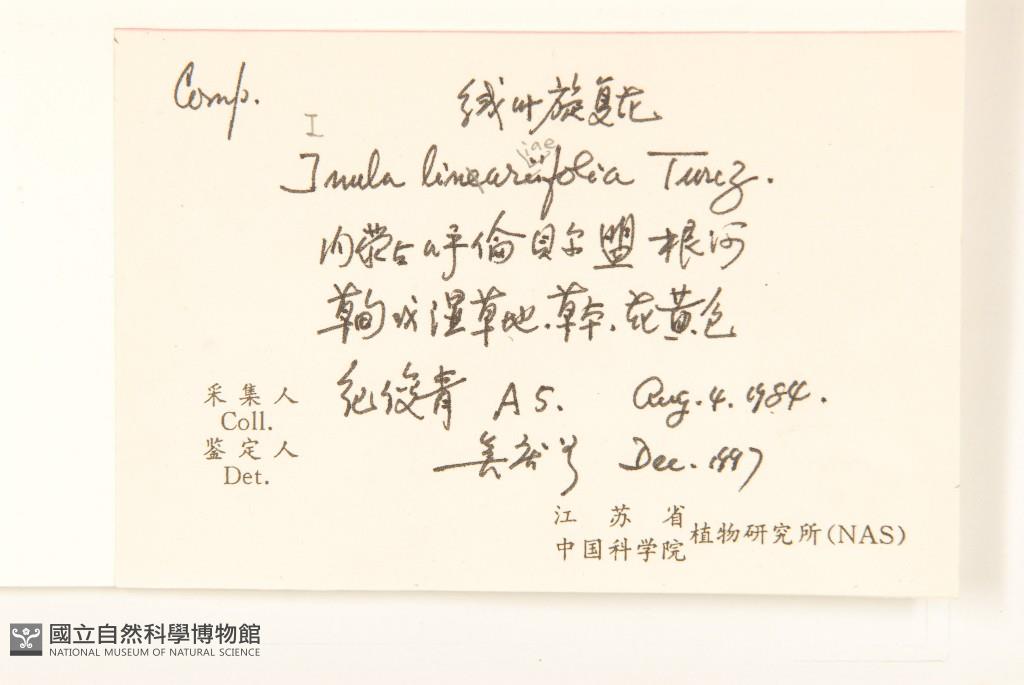 Comp.
线叶旋复花
I
iae
Inula linearifolia Turcz.
内蒙古呼倫贝尔盟 根河
草甸或湿草地.草本.花黄色
采集人 纪俊青 A5. Aug. 4. 1984.
Coll.
鉴定人 Dec. 1997
Det.
江苏省
中国科学院 植物研究所(NAS)
國立自然科學博物館
NATIONAL MUSEUM OF NATURAL SCIENCE